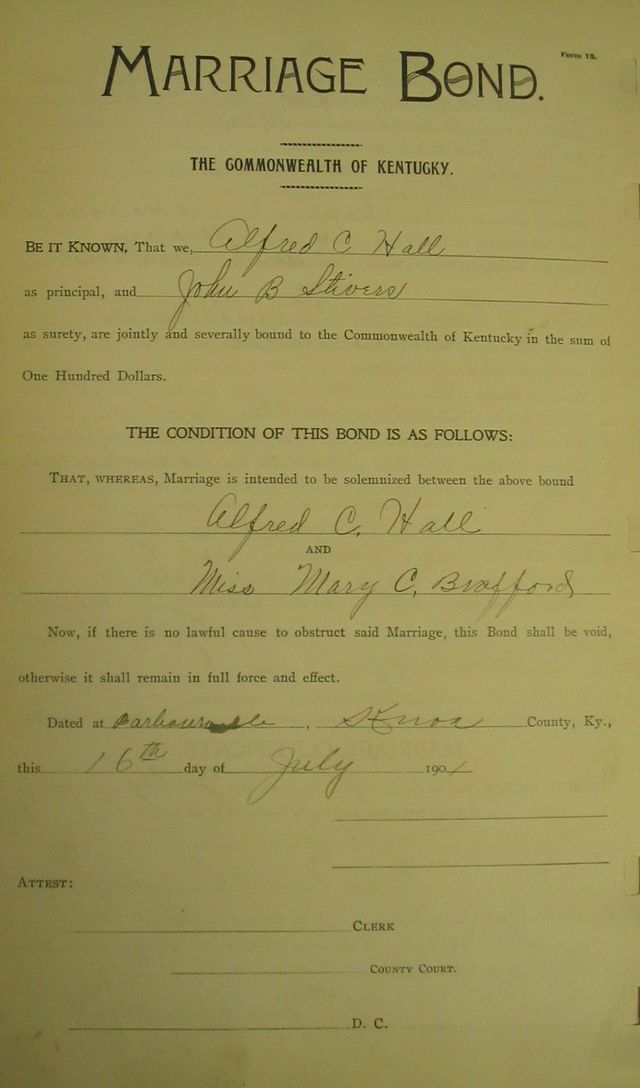 Form 78.
MARRIAGE BOND.
THE COMMONWEALTH OF KENTUCKY.
BE IT KNOWN, That we, Alfred C Hall
as principal, and John B Stivers
as surety, are jointly and severally bound to the Commonwealth of Kentucky in the sum of
One Hundred Dollars.
THE CONDITION OF THIS BOND IS AS FOLLOWS:
THAT, WHEREAS, Marriage is intended to be solemnized between the above bound
Alfred C. Hall
AND
Miss Mary C. Brafford
Now, if there is no lawful cause to obstruct said Marriage, this Bond shall be void,
otherwise it shall remain in full force and effect.
Dated at Barbourville, Knox County, Ky.,
this 16th day of July 1901
ATTEST:
CLERK
COUNTY COURT.
D. C.